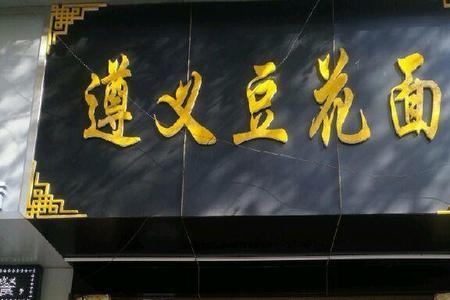 遵义豆花面